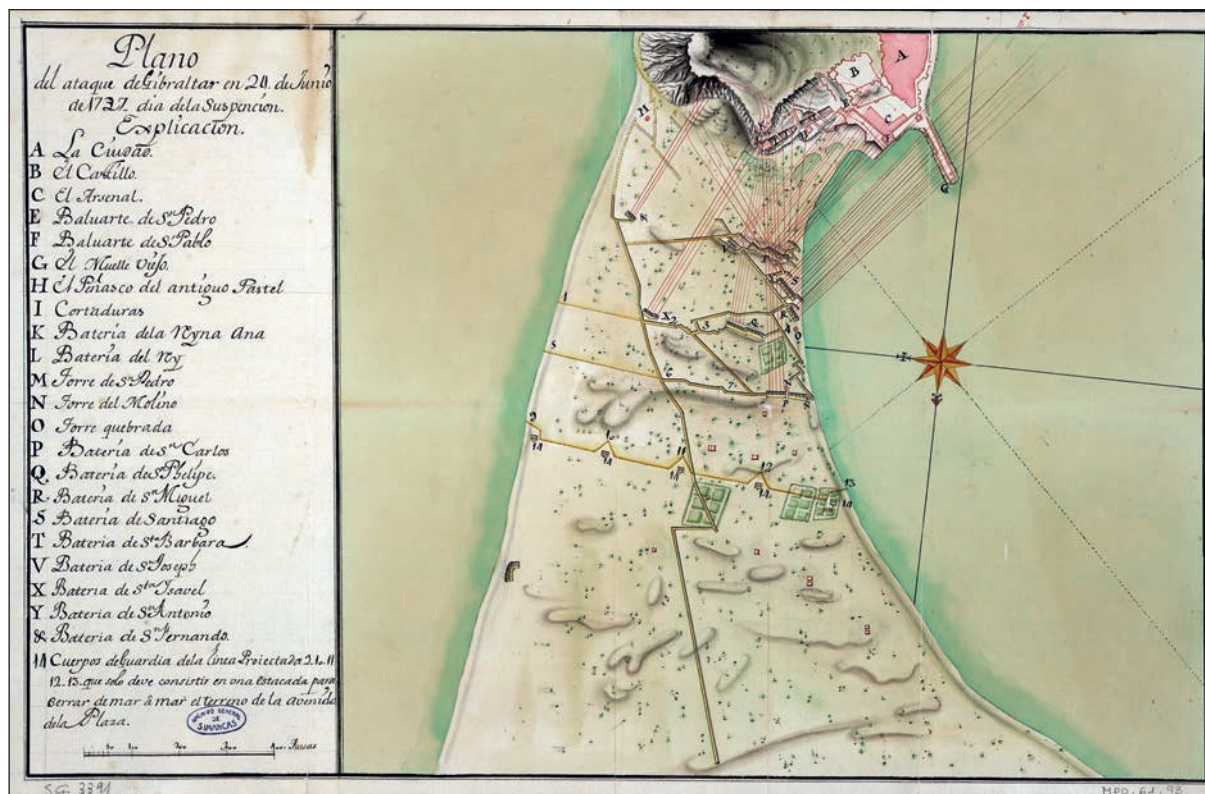 Plano
del ataque de Gibraltar en 20 de Junio
de 1727. dia dela Suspencion.
Explicacion.
A La Ciudad.
B El Castillo.
C El Arsenal.
E Baluarte de Sn Pedro
F Baluarte de S. Pablo
G El Muelle Viejo.
H El Peñasco del antiguo Pastel
I Cortaduras
K Bateria dela Reyna Ana
L Bateria del Rey
M Torre de Sn Pedro
N Torre del Molino
O Torre quebrada
P Bateria de Sn Carlos
Q Bateria de Sn Phelipe.
R Bateria de Sn Miguel
S Bateria de Santiago
T Bateria de Sta Barbara.
V Bateria de Sn Joseph
X Bateria de Sta Isavel
Y Bateria de Sn Antonio
& Bateria de Sn Fernando.
14 Cuerpos de Guardia dela linea Proiectada
12. 13. que solo deve consistir en una estacada para
cerrar de mar â mar el terreno de la avenida
dela Plaza.
ARCHIVO GENERAL
DE
SIMANCAS
S.G. 3391
A
B
C
G
H
X
S
Q
O
N
P
6
7
9
10
11
12
13
14
14
14
14
14
MPD. 61. 93